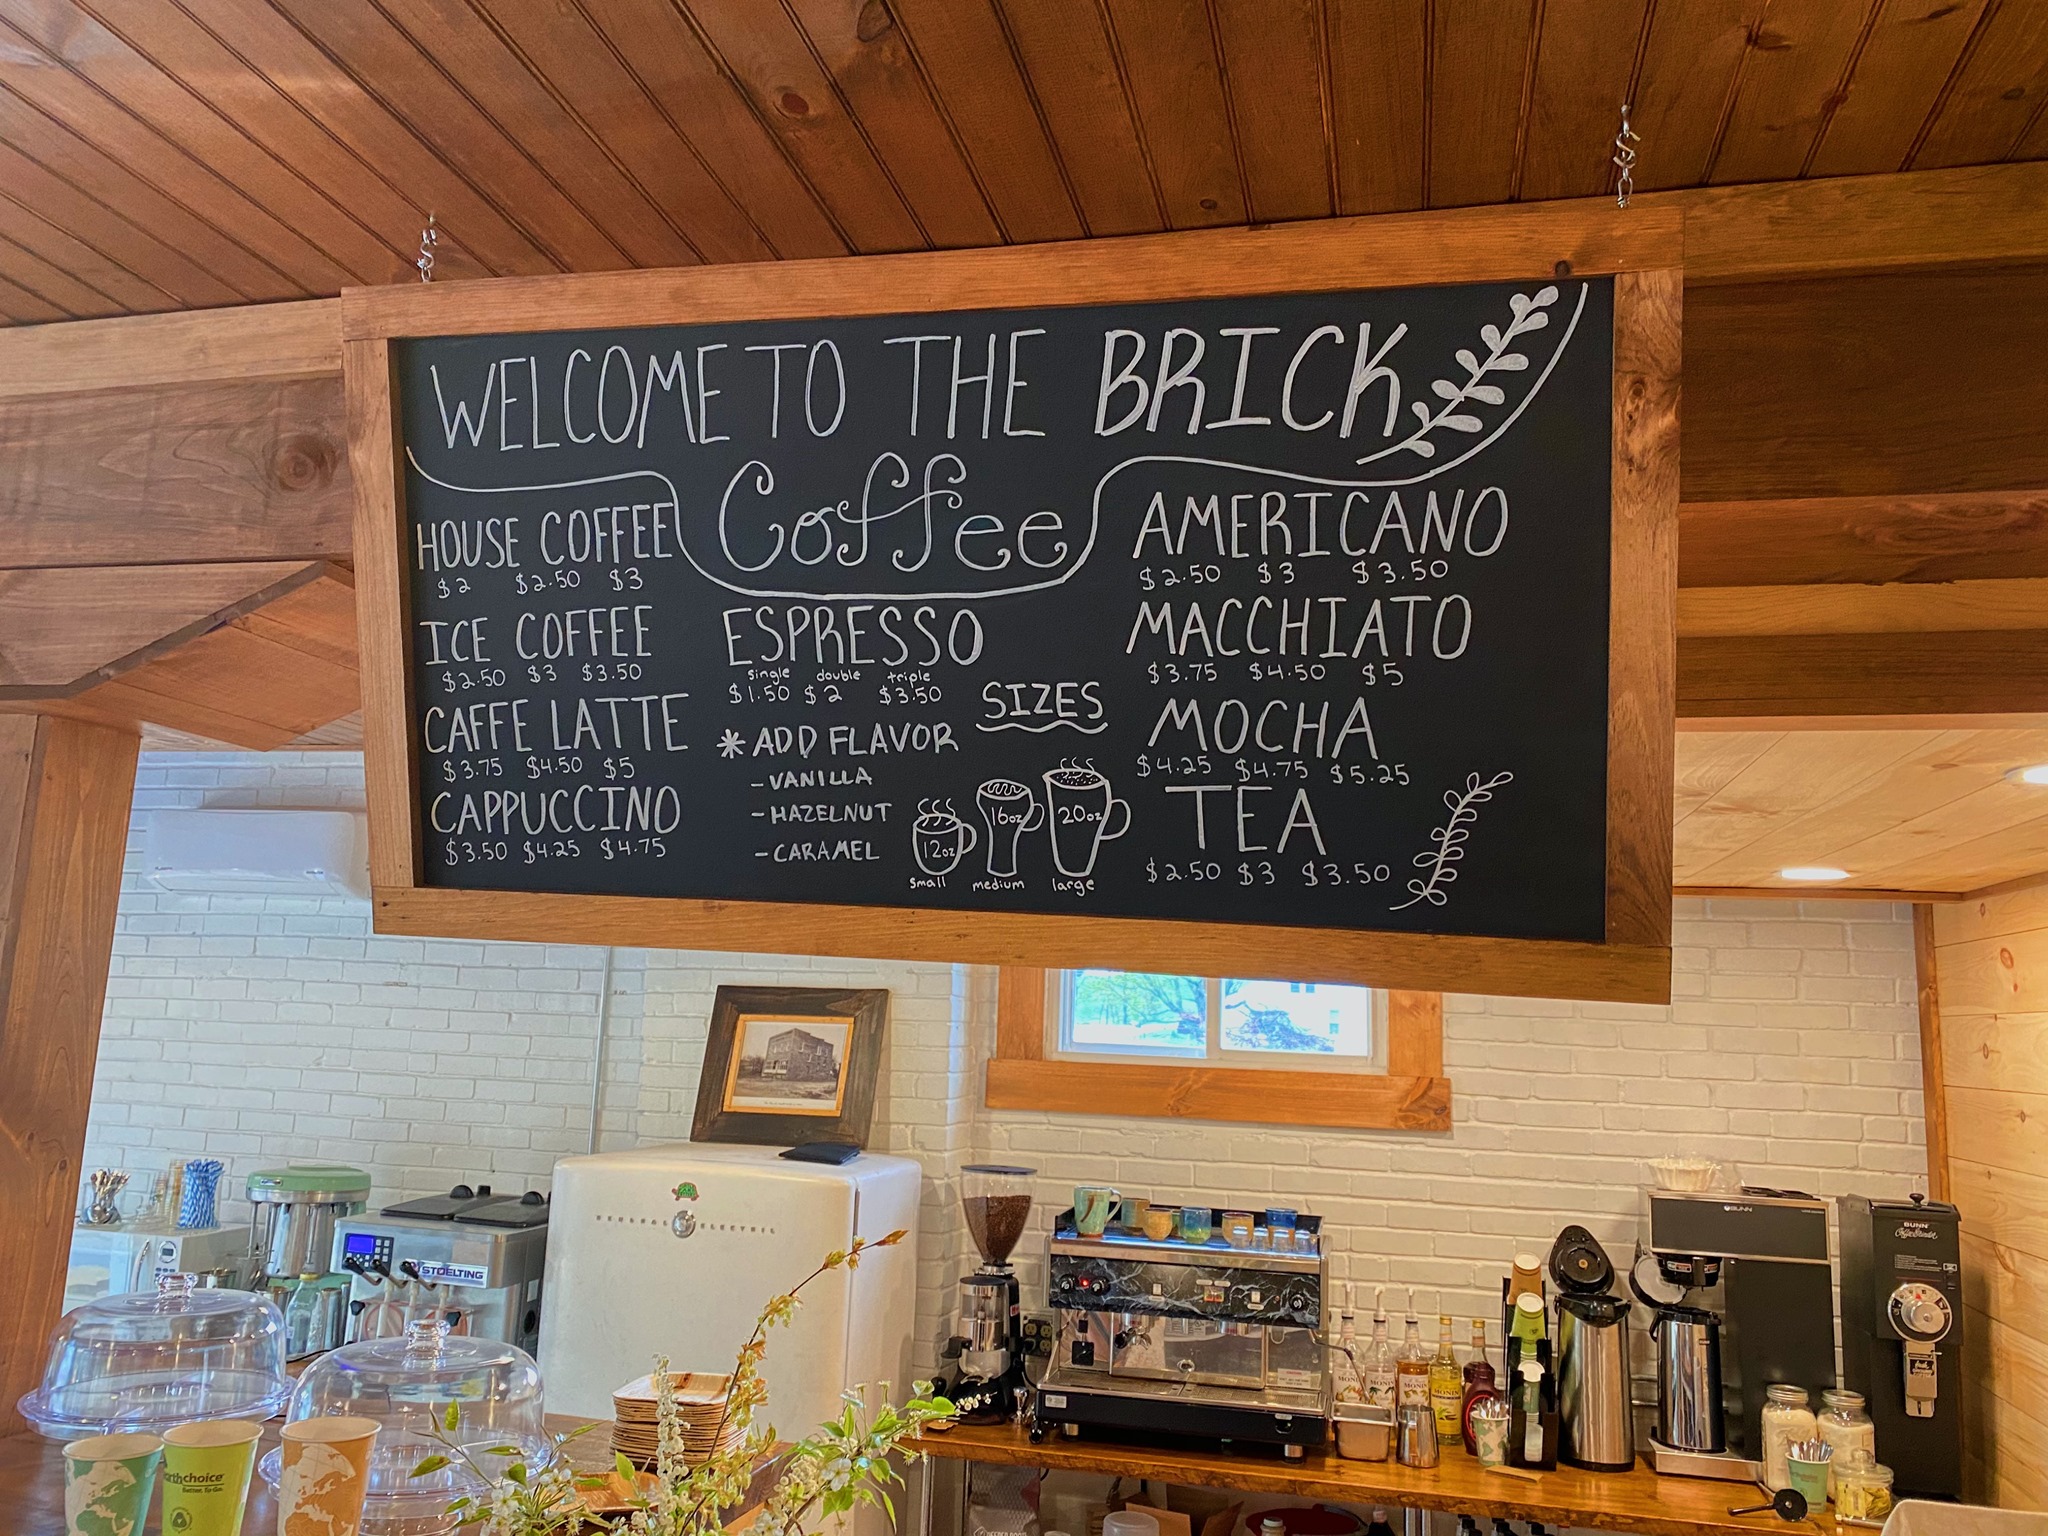 WELCOME TO THE BRICK
Coffee
HOUSE COFFEE
$2 $2.50 $3
ICE COFFEE
$2.50 $3 $3.50
CAFFE LATTE
$3.75 $4.50 $5
CAPPUCCINO
$3.50 $4.25 $4.75
ESPRESSO
single double triple
$1.50 $2 $3.50
* ADD FLAVOR
- VANILLA
- HAZELNUT
- CARAMEL
SIZES
12oz 16oz 20oz
small medium large
AMERICANO
$2.50 $3 $3.50
MACCHIATO
$3.75 $4.50 $5
MOCHA
$4.25 $4.75 $5.25
TEA
$2.50 $3 $3.50
GENERAL ELECTRIC
STOELTING
BUNN
BUNN
MONIN
MONIN
MONIN
MONIN
earthchoice